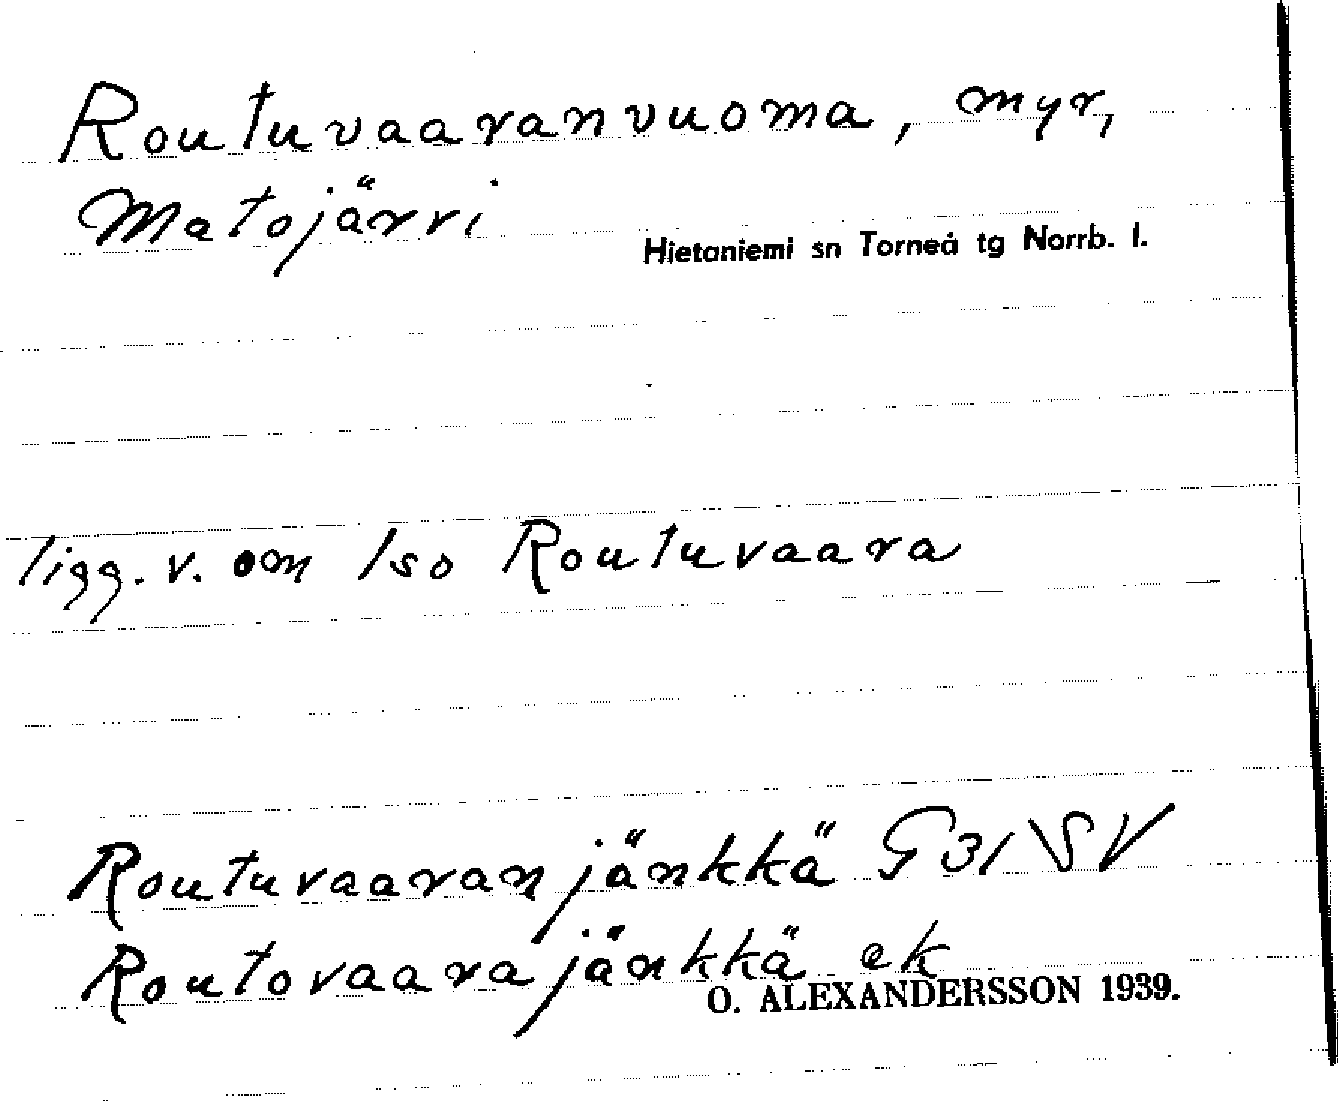 Routuvaaranvuoma, myr,
Matojärvi
Hietaniemi sn Torneå tg Norrb. l.
ligg. v. om Iso Routuvaara
Routuvaaranjänkkä G31SV
Routovaarajänkkä ek
O. ALEXANDERSSON 1939.